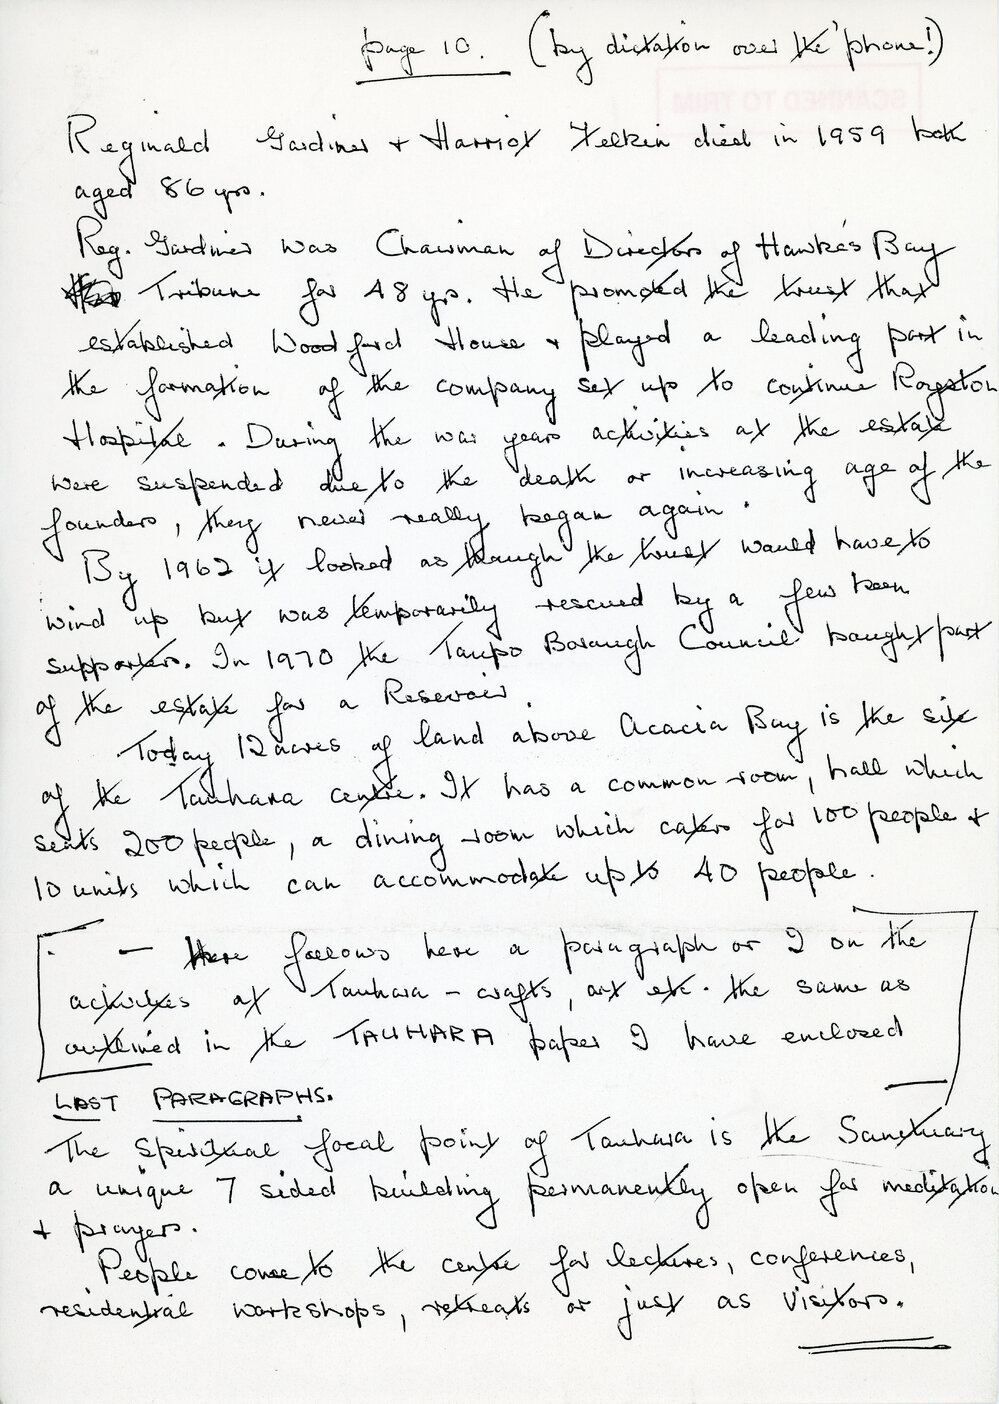 page 10. (by dictation over the 'phone!)
SCANNED TO TRIM
Reginald Gardiner + Harriot Felkin died in 1959 both
aged 86 yrs.
Reg. Gardiner was Chairman of Directors of Hawke's Bay
Tribune for 48 yrs. He promoted the trust that
established Woodford House + played a leading part in
the formation of the company set up to continue Royston
Hospital. During the war years activities at the estate
were suspended due to the death or increasing age of the
founders, they never really began again.
By 1962 it looked as though the trust would have to
wind up but was temporarily rescued by a few keen
supporters. In 1970 the Taupo Borough Council bought part
of the estate for a Resevoir.
Today 12 acres of land above Acacia Bay is the site
of the Tauhara centre. It has a common room, hall which
seats 200 people, a dining room which caters for 100 people +
10 units which can accommodate up to 40 people.
- There follows here a paragraph or 2 on the
activities at Tauhara - crafts, art etc. the same as
outlined in the TAUHARA paper I have enclosed
LAST PARAGRAPHS.
The spiritual focal point of Tauhara is the Sanctuary
a unique 7 sided building permanently open for meditation
+ prayers.
People come to the centre for lectures, conferences,
residential workshops, retreats or just as visitors.